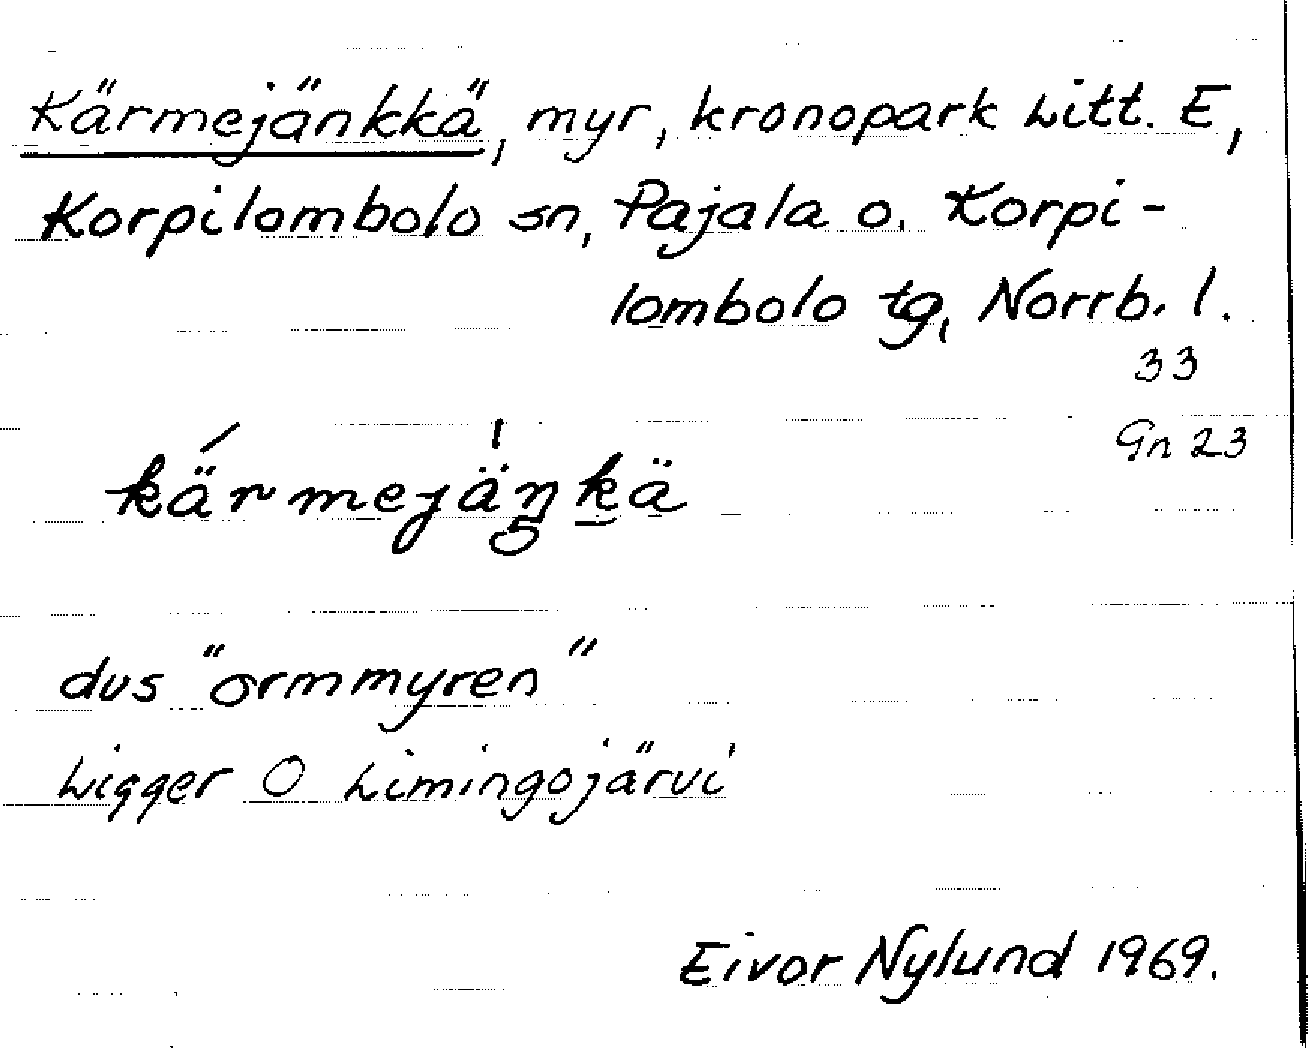 Kärmejänkkä, myr, kronopark Litt. E,
Korpilombolo sn, Pajala o. Korpi-
lombolo tg, Norrb. l.
33
Gn 23
kä́rmejä̍ŋk̲ä
dvs "ormmyren"
Ligger O Limingojärvi
Eivor Nylund 1969.